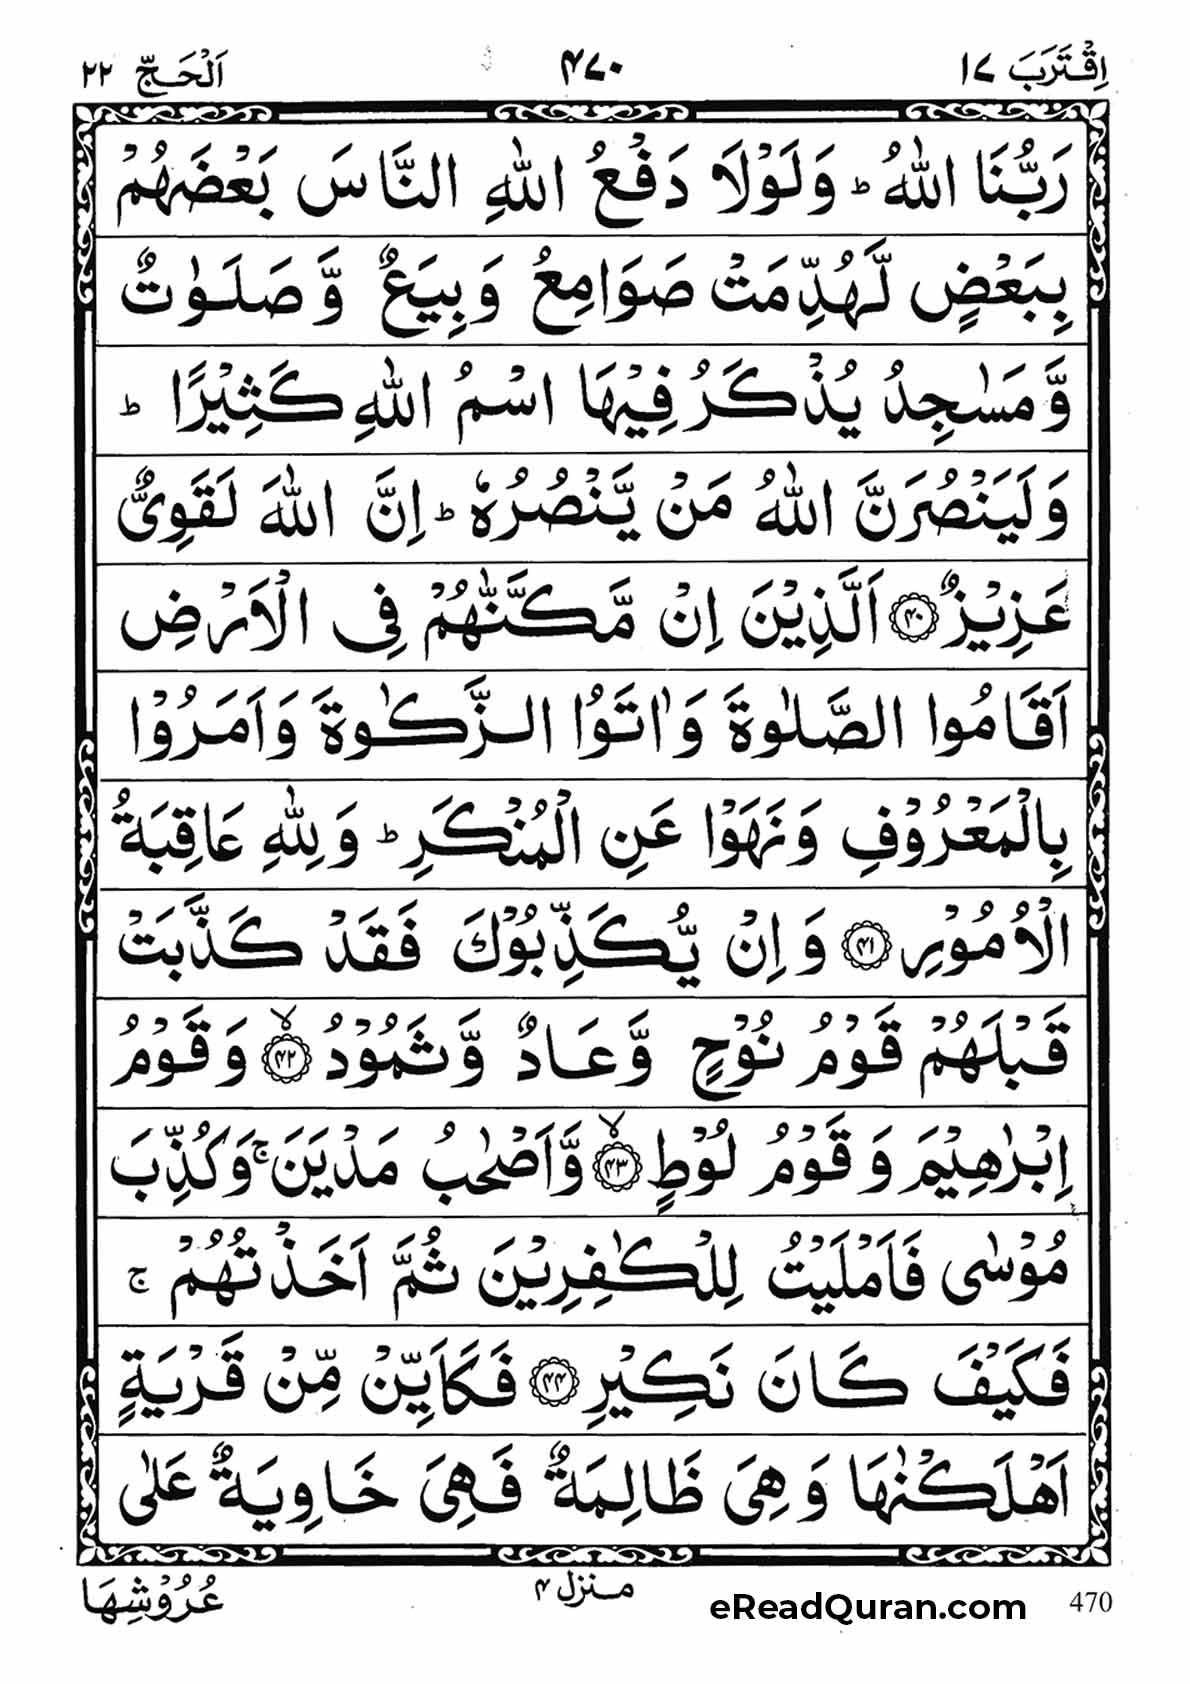 اِقْتَرَبَ ١٧
٤٧٠
اَلْحَجّ ٢٢
رَبُّنَا اللّٰهُ ؕ وَلَوْلَا دَفْعُ اللّٰهِ النَّاسَ بَعْضَهُمْ
بِبَعْضٍ لَّهُدِّمَتْ صَوَامِعُ وَبِيَعٌ وَّصَلَوٰتٌ
وَّمَسٰجِدُ يُذْكَرُ فِيْهَا اسْمُ اللّٰهِ كَثِيْرًا ؕ
وَلَيَنْصُرَنَّ اللّٰهُ مَنْ يَّنْصُرُهٗ ؕ اِنَّ اللّٰهَ لَقَوِىٌّ
عَزِيْزٌ ﴿٤٠﴾ اَلَّذِيْنَ اِنْ مَّكَّنّٰهُمْ فِى الْاَرْضِ
اَقَامُوا الصَّلٰوةَ وَاٰتَوُا الزَّكٰوةَ وَاَمَرُوْا
بِالْمَعْرُوْفِ وَنَهَوْا عَنِ الْمُنْكَرِ ؕ وَلِلّٰهِ عَاقِبَةُ
الْاُمُوْرِ ﴿٤١﴾ وَاِنْ يُّكَذِّبُوْكَ فَقَدْ كَذَّبَتْ
قَبْلَهُمْ قَوْمُ نُوْحٍ وَّعَادٌ وَّثَمُوْدُ ﴿٤٢﴾ۙ وَقَوْمُ
اِبْرٰهِيْمَ وَقَوْمُ لُوْطٍ ﴿٤٣﴾ۙ وَّاَصْحٰبُ مَدْيَنَ ۚ وَكُذِّبَ
مُوْسٰى فَاَمْلَيْتُ لِلْكٰفِرِيْنَ ثُمَّ اَخَذْتُهُمْ ۚ
فَكَيْفَ كَانَ نَكِيْرِ ﴿٤٤﴾ فَكَاَيِّنْ مِّنْ قَرْيَةٍ
اَهْلَكْنٰهَا وَهِىَ ظَالِمَةٌ فَهِىَ خَاوِيَةٌ عَلٰى
عُرُوْشِهَا
منزل ٤
eReadQuran.com
470